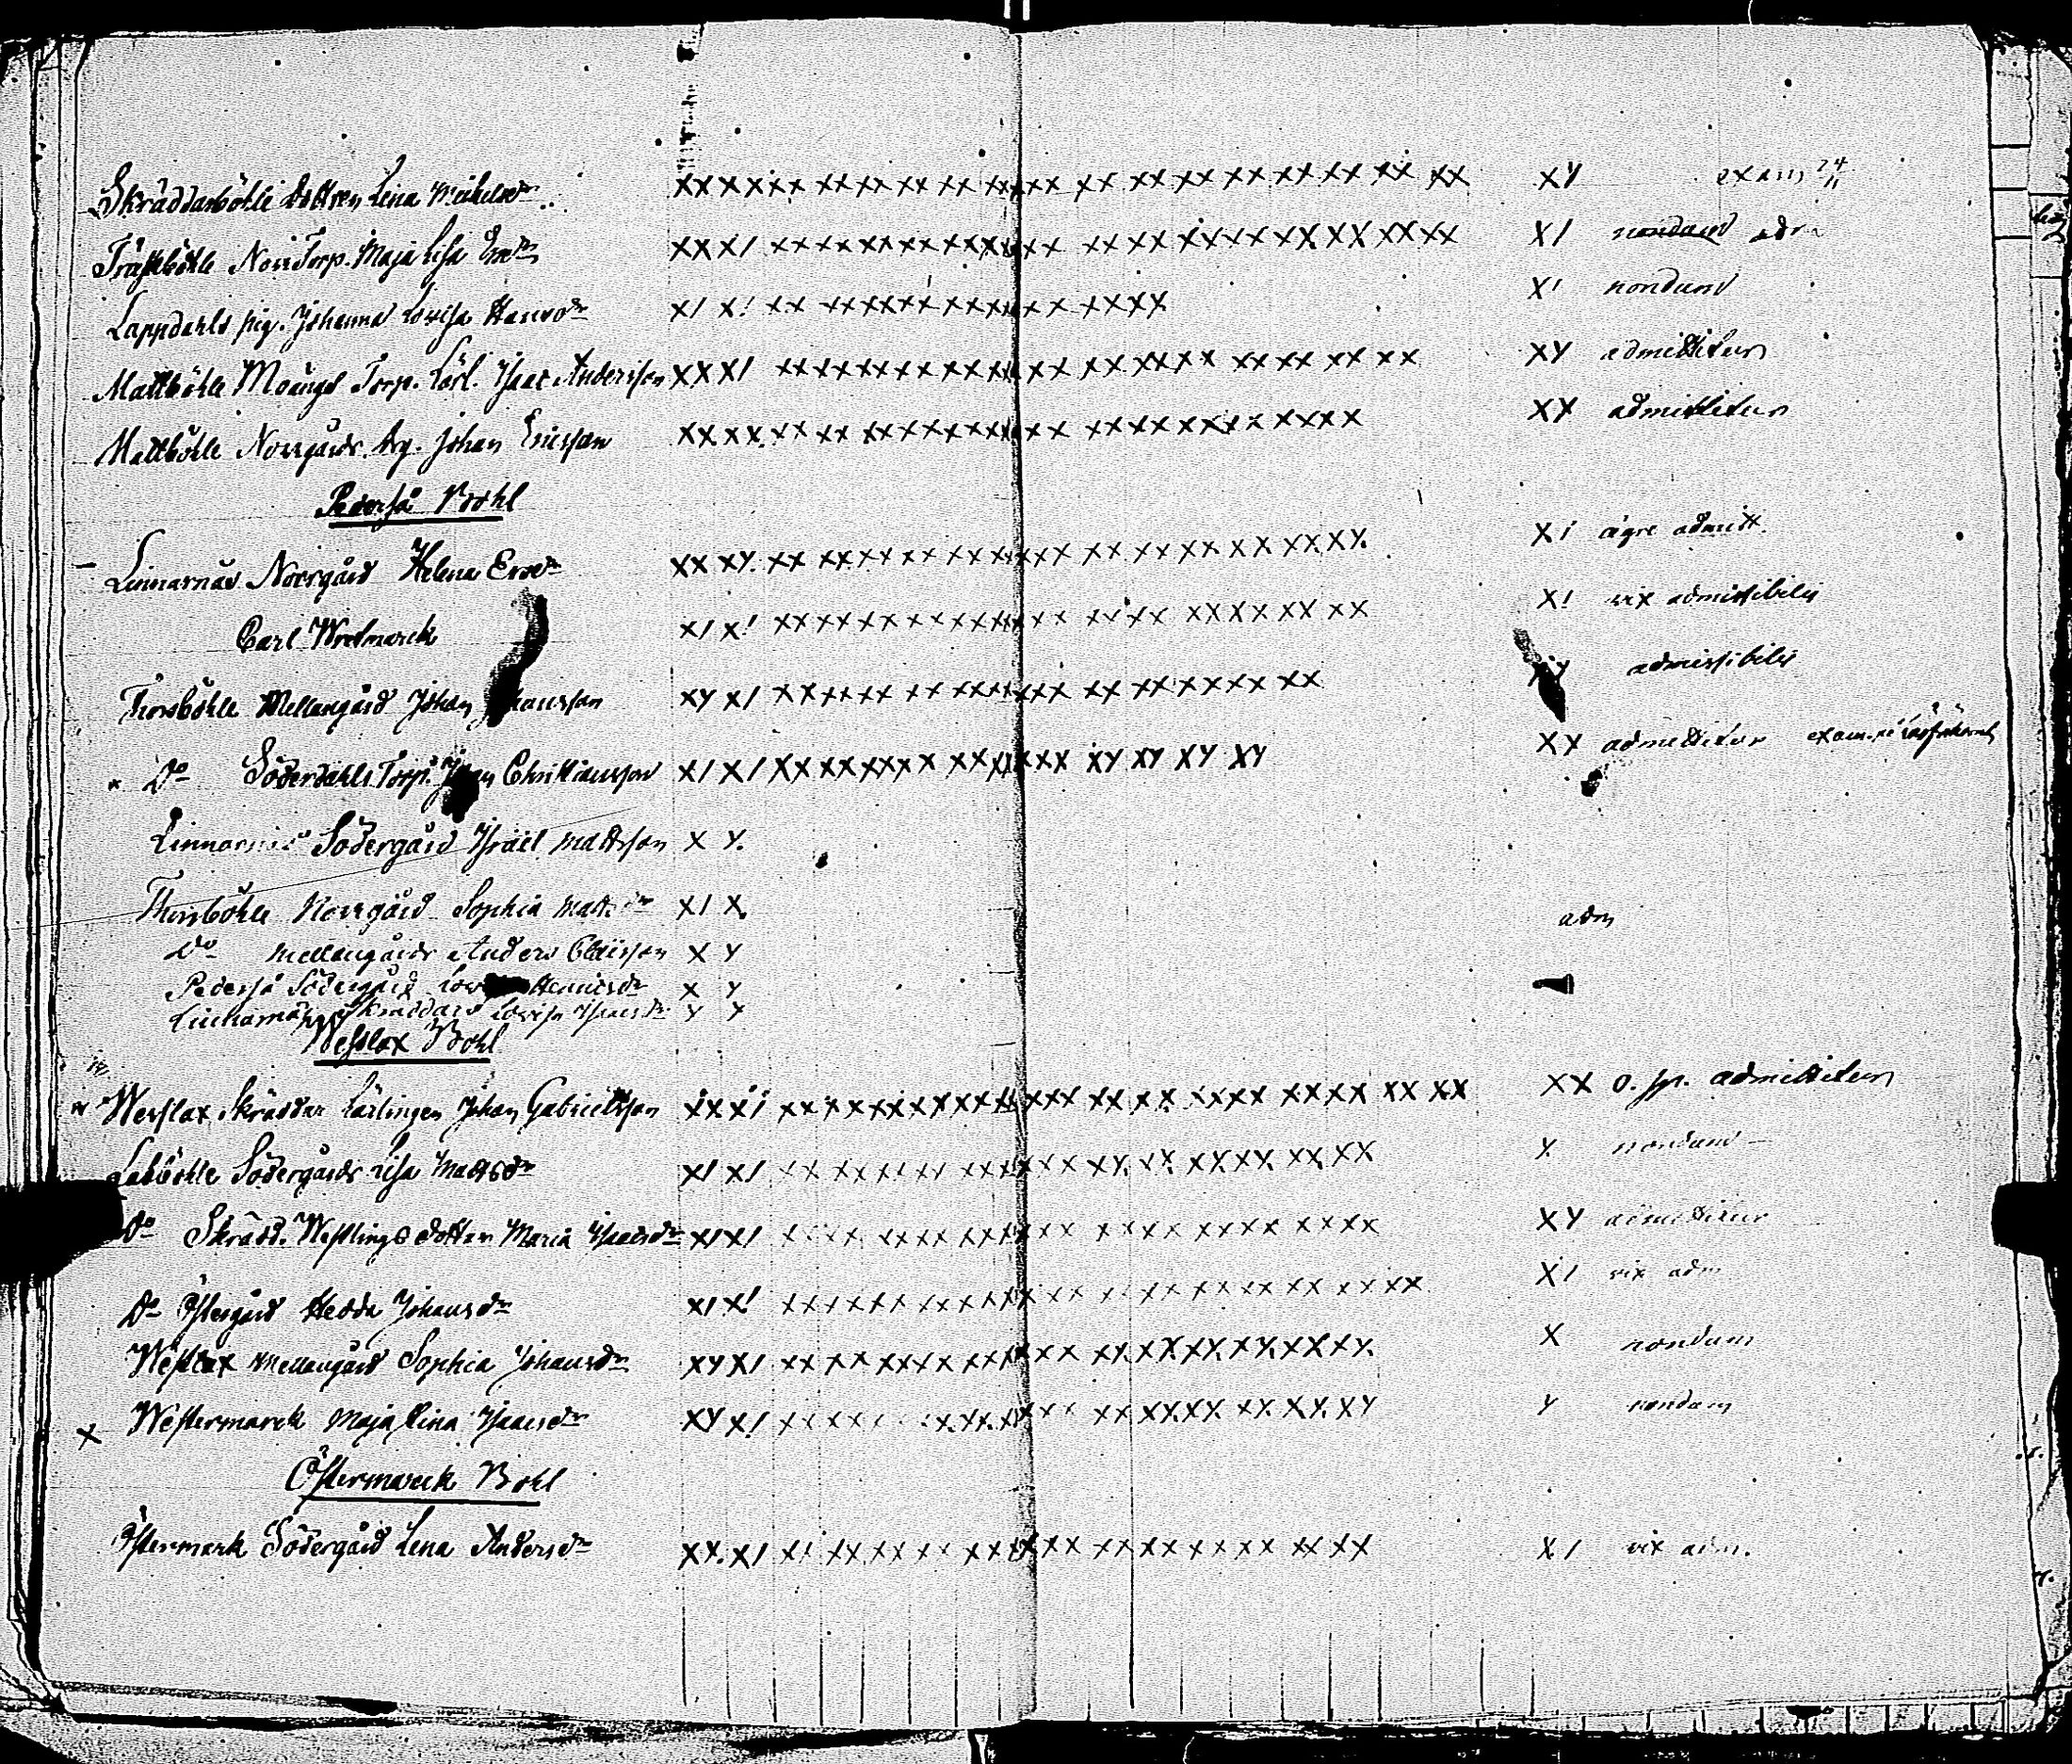 Skräddarböhle dottren Lena Michelsdr XX XX XX XX XX XX XX XX XX XX XX XX XX XX XX XX XX XY exam 24/11
Träskböhle Norr Torp. Maja Lisa Ersdr XX X/ XX XX XX XX XX XX XX XX XX XX XX XX XX XX X/ nondum adm
Lappdahls pig. Johanna Lovisa Hansdr X/ X! XX XX XX XX XX XX XX XX X! nondum
Mattböhle Moängs Torp. Karl. Isaac Andersson XX X/ XX XX XX XX XX XX XX XX XX XX XX XX XX XY admittitur
Mattböhle Norrgårds Johan Ericsson XX XX XX XX XX XX XX XX XX XX XX XX XX XX XX admittitur
Pederså Bohl
Linnarnäs Norrgård Helena Ersdr XX XY XX XX XX XX XX XX XX XX XX XX XX XX XY X/ ägre admitt.
Carl Wretmarck X/ X! XX XX XX XX XX XX XX XX XX XX XX XX X! vix admissibilis
Thorsböhle Mellangård Johan Johansson XY X/ XX XX XX XX XX XX XX XX XX XX XX XY admissibilis
Do Söderdahls Torp. Johan Christiansson X/ X/ XX XX XX XX XX XX XX XY XY XY XY XX admittitur exam.
Linnarnäs Södergård Israel Mattsson X Y.
Thorsböhle Norrgård Sophia Mattsdr X/ X. adm
Do Mellangårds Anders Claësson X Y
Pederså Södergård X Y
Linnarnäs Skräddars Lovisa Isaacsdr Y Y
Westlax Bohl
Westlax Skräddar Lärlingen Johan Gabrielsson XX X/ XX XX XX XX XX XX XX XX XX XX XX XX XX XX XX o. sp. admittitur
Labböhle Södergårds Lisa Mattsdr X/ X/ XX XX XX XX XX XX XX XX XX XX XX XX X nondum
Do Skrädd. Westlings dotter Maria Isaacsdr X/ X/ XX XX XX XX XX XX XX XX XX XX XX XX XY admittitur
Do Östergård Hedda Johansdr X/ X! XX XX XX XX XX XX XX XX XX XX XX XX XX X/ vix adm
Westlax Mellangård Sophia Johansdr XY X/ XX XX XX XX XX XX XX XX XX XX XX XY X nondum
X Westermarck Maja Stina Isaacsdr XY X! XX XX XX XX XX XX XX XX XX XX XY Y nondum
Östermarck Bohl
Östermark Södergård Lena Andersdr XX X/ X/ XX XX XX XX XX XX XX XX XX XX XX XX X/ vix adm.